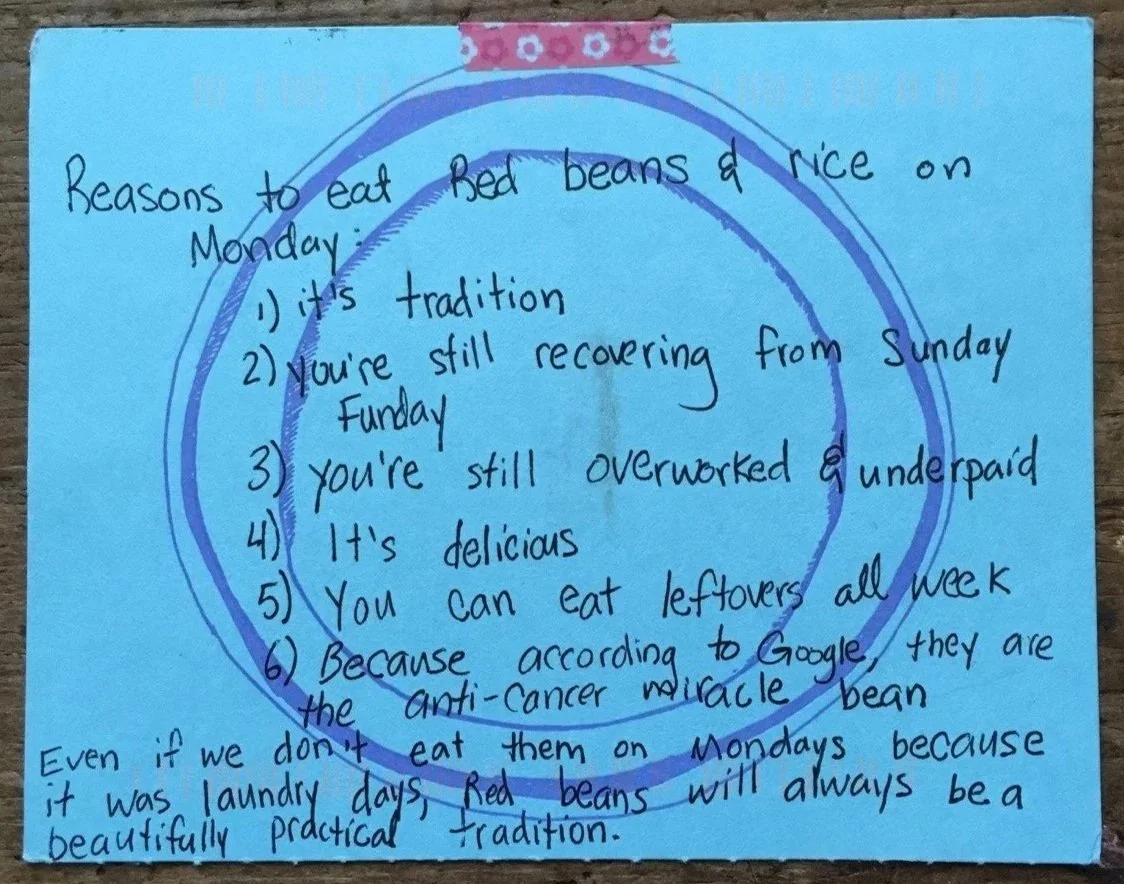 Reasons to eat Red beans & rice on
Monday:
1) it's tradition
2) you're still recovering from Sunday
Funday
3) you're still overworked & underpaid
4) It's delicious
5) You can eat leftovers all week
6) Because according to Google, they are
the anti-cancer miracle bean
Even if we don't eat them on Mondays because
it was laundry days, Red beans will always be a
beautifully practical tradition.